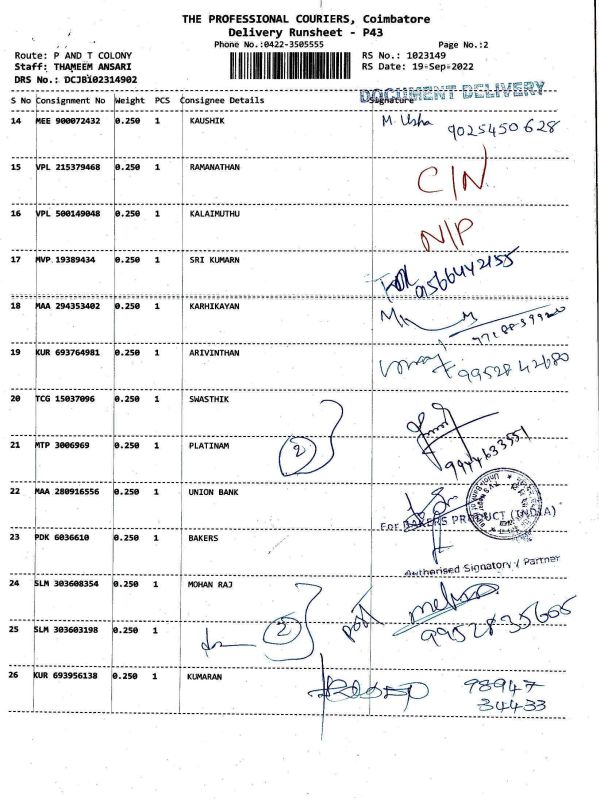 THE PROFESSIONAL COURIERS, Coimbatore
Delivery Runsheet - P43
Phone No.:0422-3505555 Page No.:2
Route: P AND T COLONY RS No.: 1023149
Staff: THAMEEM ANSARI RS Date: 19-Sep-2022
DRS No.: DCJB102314902
DOCUMENT DELIVERY
S No Consignment No Weight PCS Consignee Details Signature
14 MEE 900072432 0.250 1 KAUSHIK M. Usha 9025450628
15 VPL 215379468 0.250 1 RAMANATHAN C/N
16 VPL 500149048 0.250 1 KALAIMUTHU N/P
17 MVP 19389434 0.250 1 SRI KUMARN 9566442155
18 MAA 294353402 0.250 1 KARHIKAYAN
19 KUR 693764981 0.250 1 ARIVINTHAN 9952842680
20 TCG 15037096 0.250 1 SWASTHIK
21 MTP 3006969 0.250 1 PLATINAM 2 9944633551
22 MAA 280916556 0.250 1 UNION BANK
For BAKERS PRODUCT (INDIA)
23 PDK 6036610 0.250 1 BAKERS
Authorised Signatory / Partner
24 SLM 303608354 0.250 1 MOHAN RAJ
25 SLM 303603198 0.250 1 2 9952835605
26 KUR 693956138 0.250 1 KUMARAN 98947
34433